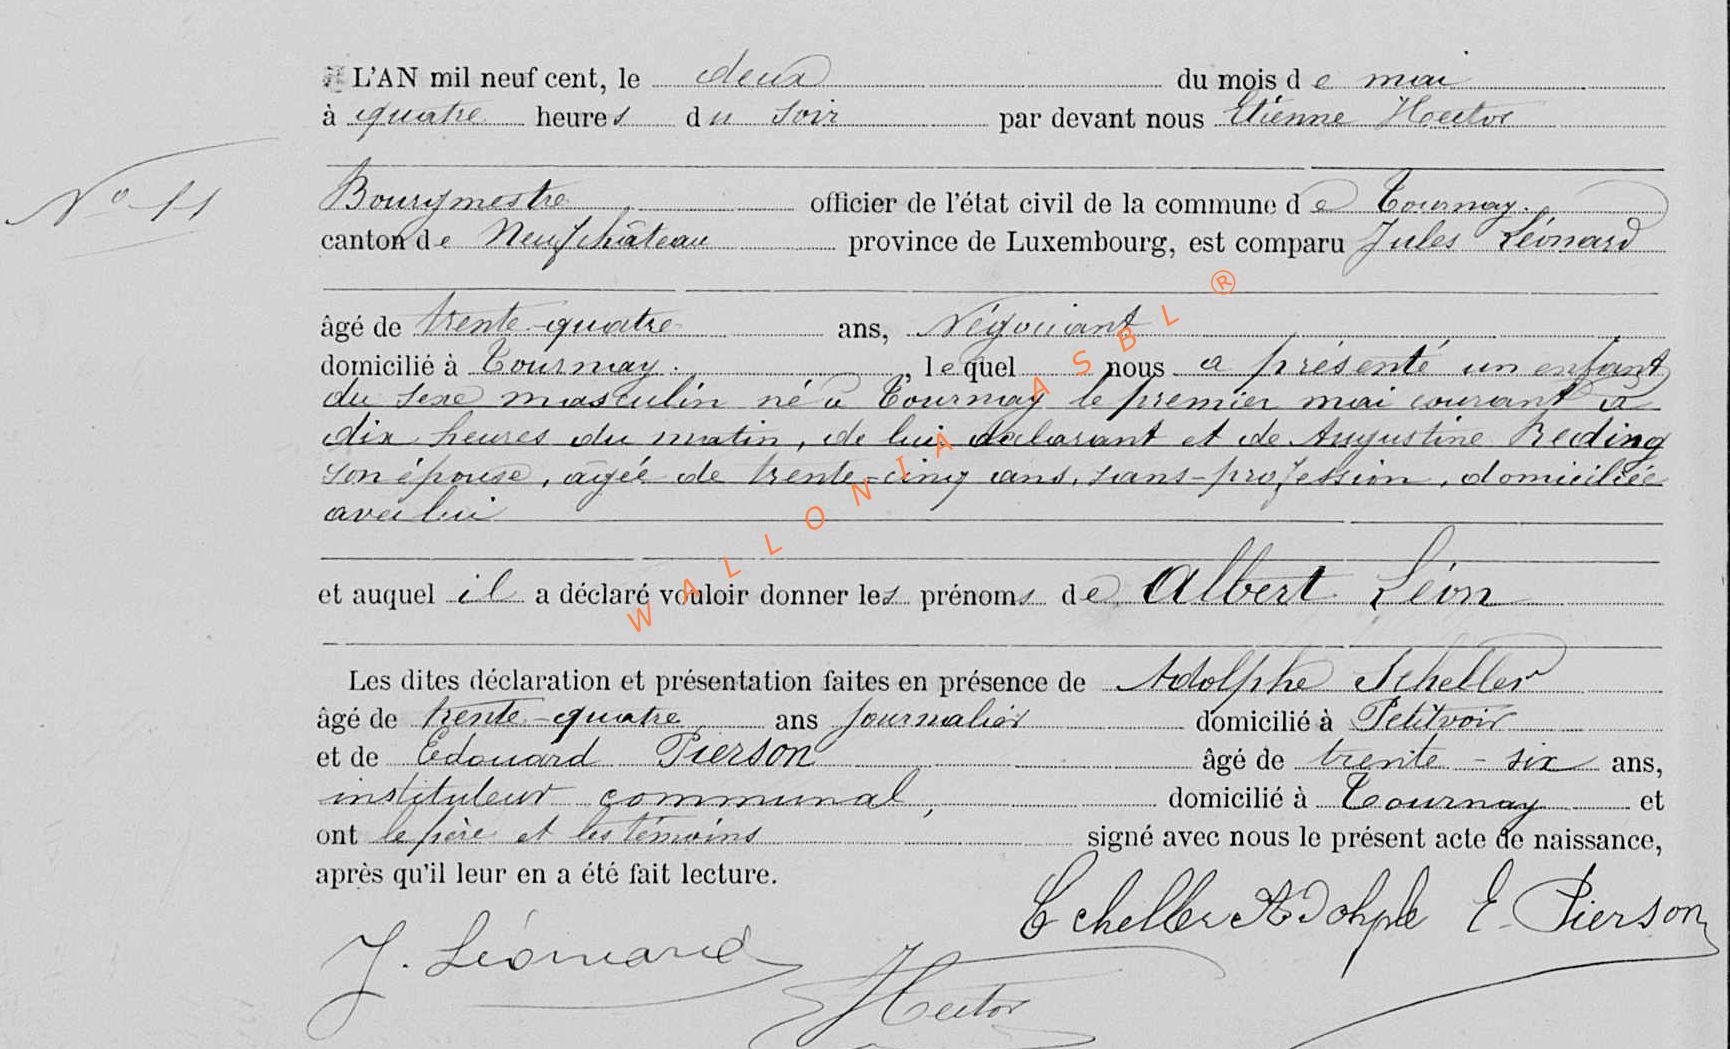 L'AN mil neuf cent, le deux du mois de mai
à quatre heures du soir par devant nous Etienne Hector
N° 11
Bourgmestre officier de l'état civil de la commune de Tournay.
canton de Neufchâteau province de Luxembourg, est comparu Jules Léonard
âgé de trente-quatre ans, Négociant
domicilié à Tournay. , lequel nous a présenté un enfant
du sexe masculin né à Tournay le premier mai courant à
dix heures du matin, de lui déclarant et de Augustine Reding
son épouse, âgée de trente-cinq ans, sans-profession, domiciliée
avec lui
et auquel il a déclaré vouloir donner les prénoms de Albert Léon
Les dites déclaration et présentation faites en présence de Adolphe Scheller
âgé de trente-quatre ans journalier domicilié à Petitvoir
et de Edouard Pierson âgé de trente-six ans,
instituteur communal, domicilié à Tournay et
ont le père et les témoins signé avec nous le présent acte de naissance,
après qu'il leur en a été fait lecture.
Scheller Adohple E. Pierson
J. Léonard
Hector
WALLONIA ASBL ®